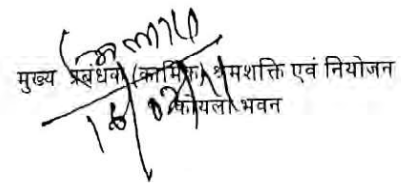 मुख्य प्रबंधक (कार्मिक) श्रमशक्ति एवं नियोजन
कोयला भवन